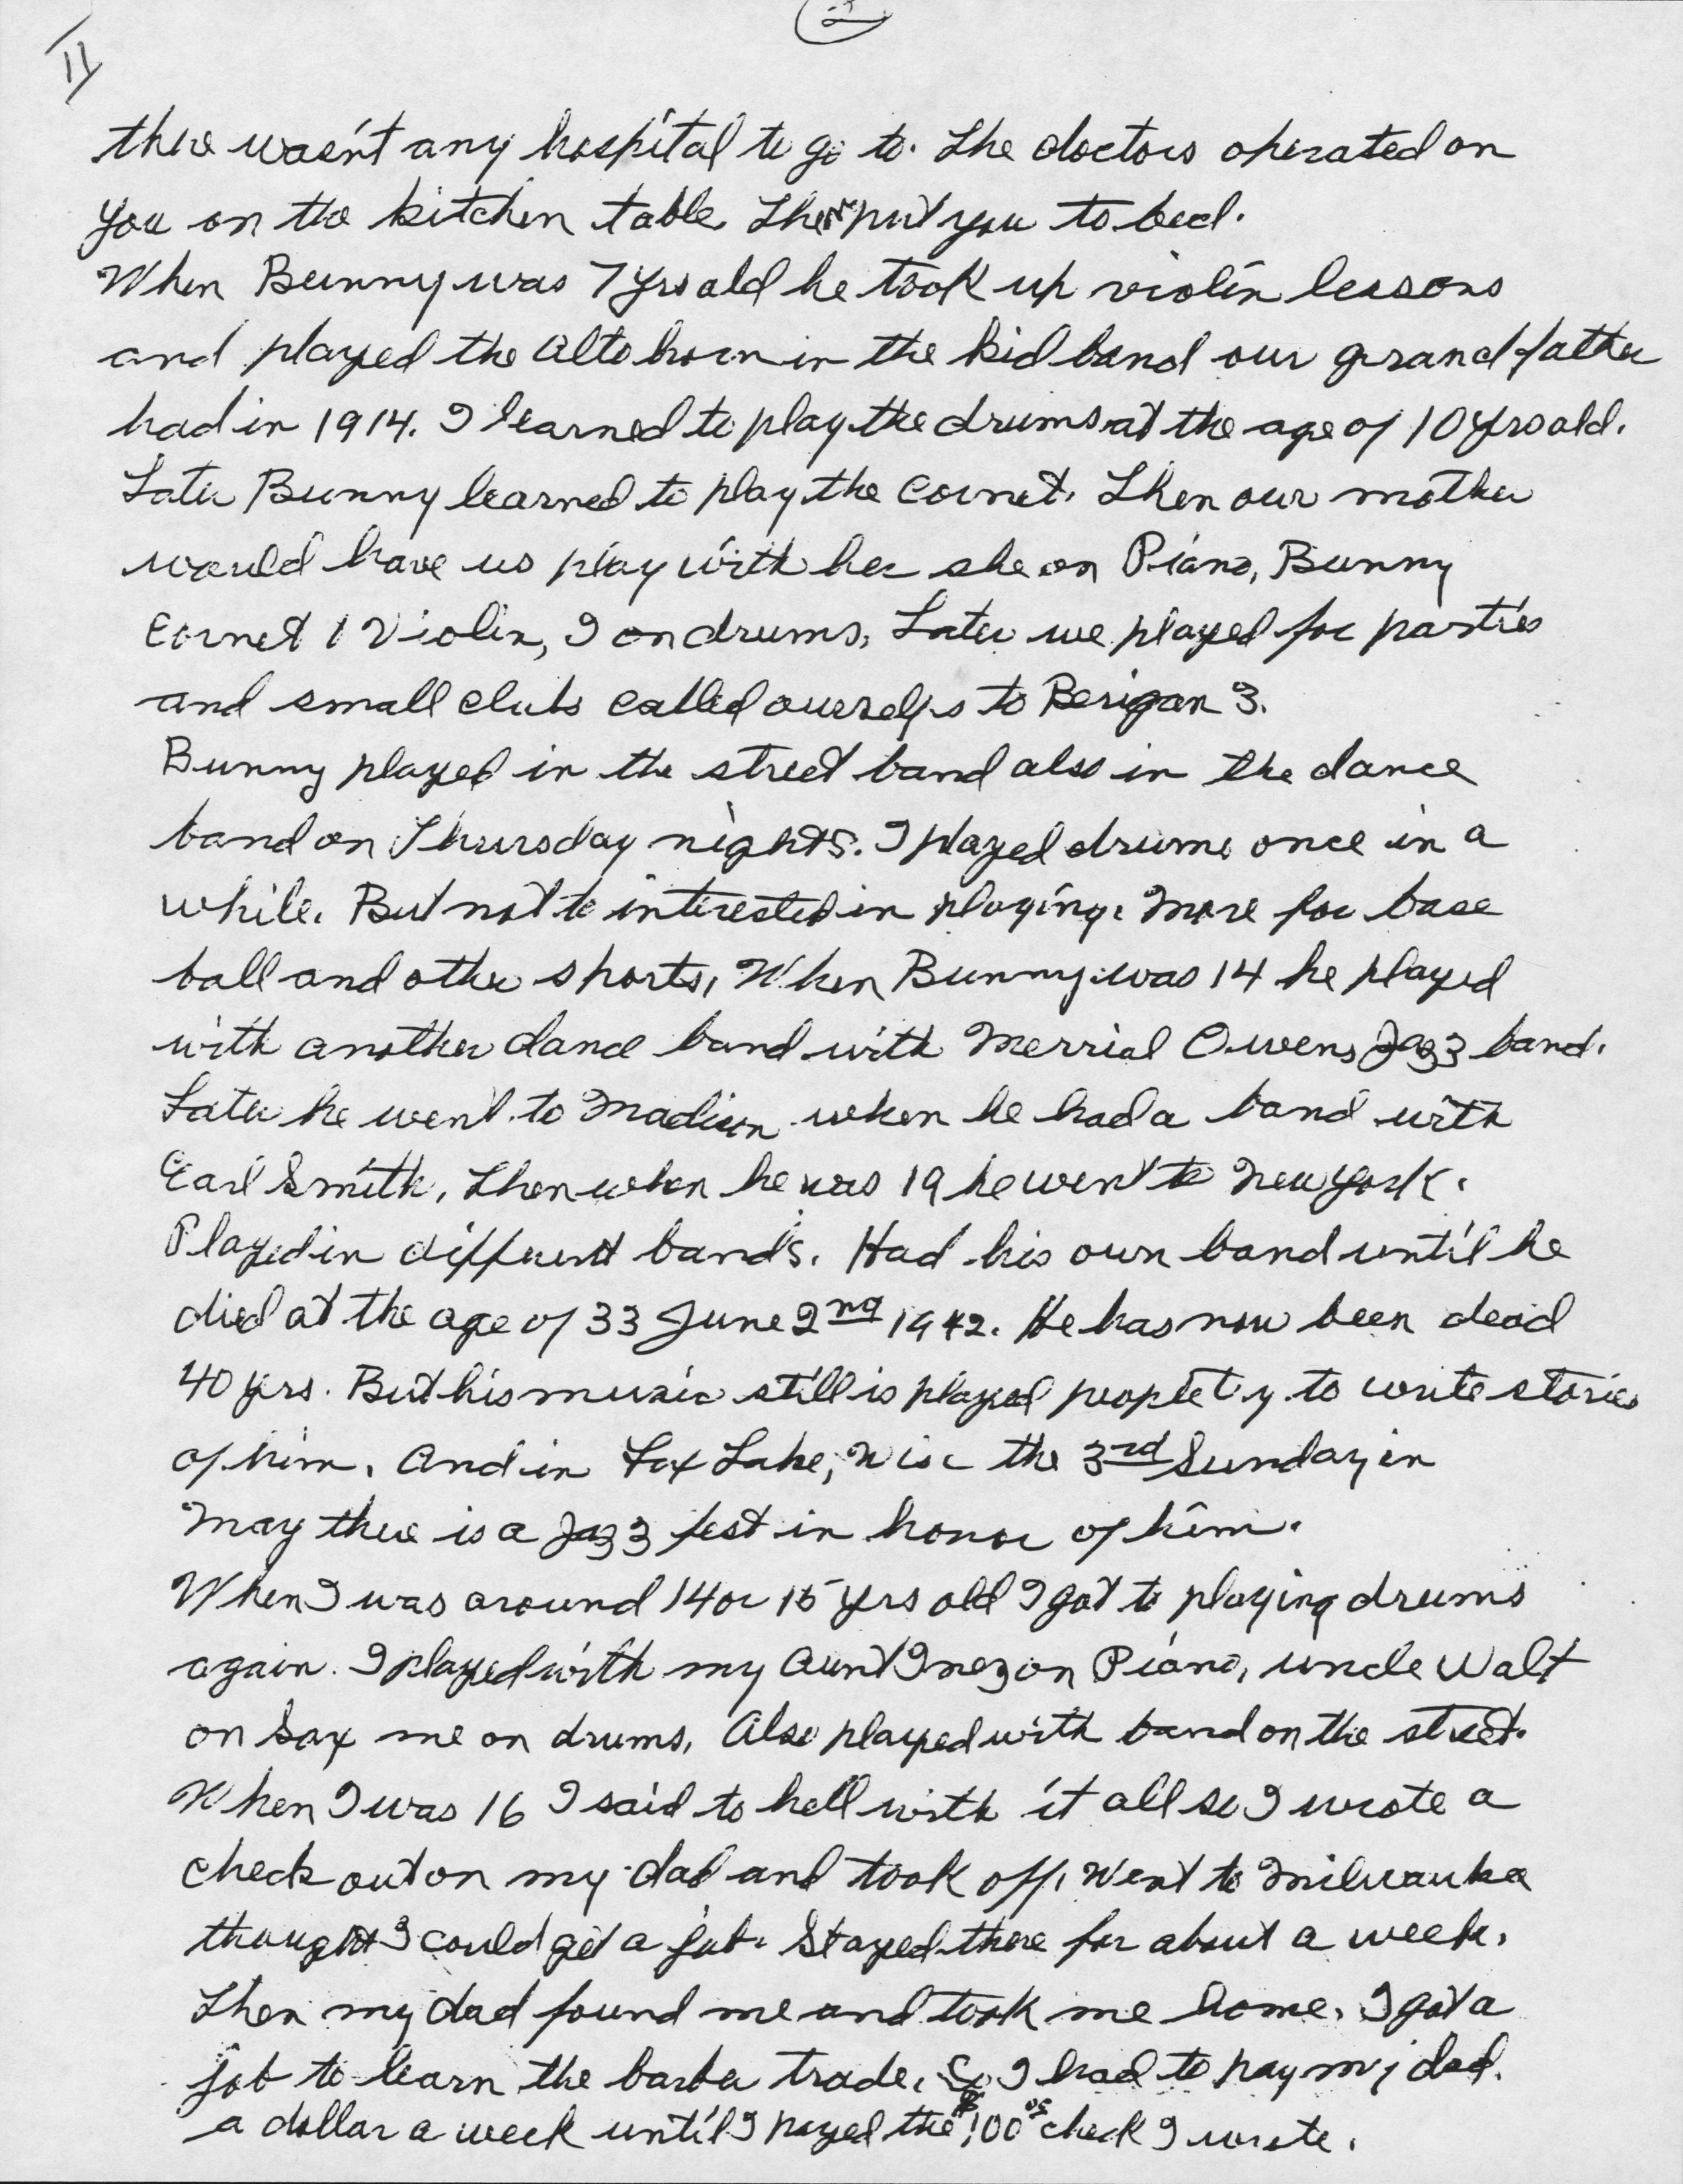 2
II
there wasn't any hospital to go to. The doctors operated on
you on the kitchen table. Then put you to bed.
When Bunny was 7 yrs old he took up violin lessons
and played the alto horn in the kid band our grandfather
had in 1914. I learned to play the drums at the age of 10 yrs old.
Later Bunny learned to play the cornet. Then our mother
would have us play with her she on Piano, Bunny
Cornet / Violin, I on drums, Later we played for parties
and small clubs called ourselfs to Berigan 3.
Bunny played in the street band also in the dance
band on Thursday nights. I played drums once in a
while. But not to interested in playing. More for base
ball and other sports, When Bunny was 14 he played
with another dance band with Merrial Owens Jazz band.
Later he went to Madison when he had a band with
Earl Smith, Then when he was 19 he went to New York.
Played in different bands. Had his own band until he
died at the age of 33 June 2nd 1942. He has now been dead
40 yrs. But his music still is played people try to write stories
of him. And in Fox Lake, Wisc the 3rd Sunday in
May there is a Jazz fest in honor of him.
When I was around 14 or 15 yrs old I got to playing drums
again. I played with my Aunt Inez on Piano, uncle Walt
on Sax me on drums. Also played with band on the street.
When I was 16 I said to hell with it all so I wrote a
check out on my dad and took off. Went to Milwaukee
thought I could get a job. Stayed there for about a week.
Then my dad found me and took me home. I got a
job to learn the barber trade. So I had to pay my dad.
a dollar a week until I payed the $100 00 check I wrote.